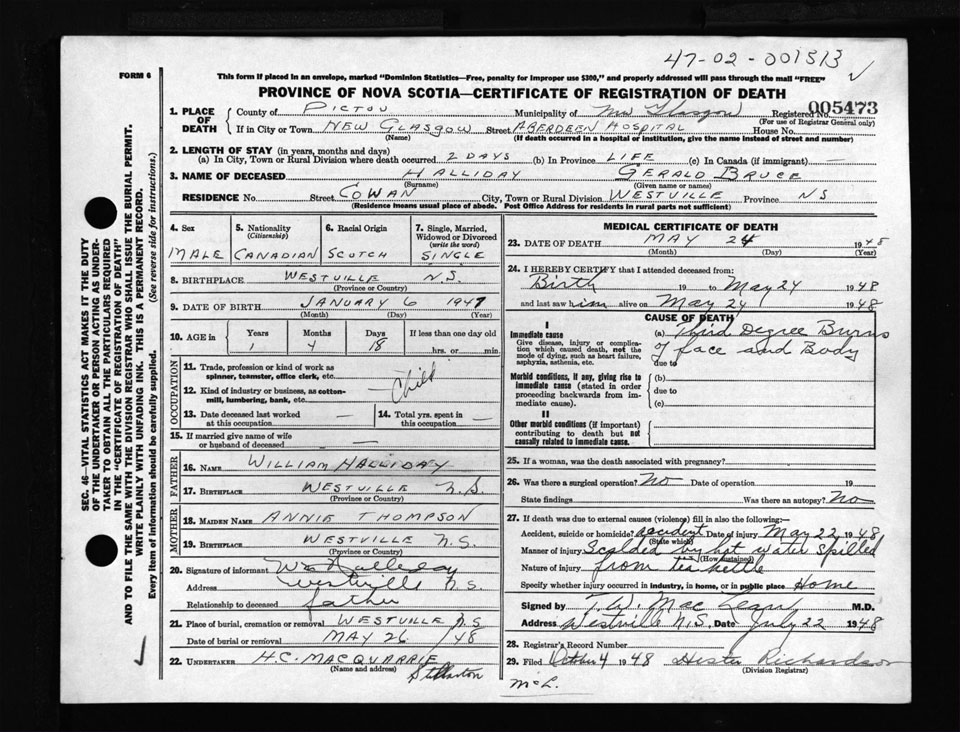 47-02-001513
FORM 6
This form if placed in an envelope, marked "Dominion Statistics—Free, penalty for improper use $300," and properly addressed will pass through the mail "FREE"
PROVINCE OF NOVA SCOTIA—CERTIFICATE OF REGISTRATION OF DEATH
005473
1. PLACE OF DEATH
County of PICTOU Municipality of New Glasgow Registered No.
(For use of Registrar General only)
If in City or Town NEW GLASGOW Street ABERDEEN HOSPITAL House No.
(Name) (If death occurred in a hospital or institution, give its name instead of street and number)
2. LENGTH OF STAY (in years, months and days)
(a) In City, Town or Rural Division where death occurred 2 DAYS (b) In Province LIFE (c) In Canada (if immigrant) —
3. NAME OF DECEASED HALLIDAY GERALD BRUCE
(Surname) (Given name or names)
RESIDENCE No. Street COWAN City, Town or Rural Division WESTVILLE Province NS
(Residence means usual place of abode. Post Office Address for residents in rural parts not sufficient)
4. Sex
MALE
5. Nationality (Citizenship)
CANADIAN
6. Racial Origin
SCOTCH
7. Single, Married, Widowed or Divorced (write the word)
SINGLE
8. BIRTHPLACE WESTVILLE N.S.
(Province or Country)
9. DATE OF BIRTH JANUARY 6 1947
(Month) (Day) (Year)
10. AGE in Years Months Days If less than one day old
1 4 18 hrs. or min.
OCCUPATION
11. Trade, profession or kind of work as spinner, teamster, office clerk, etc. —
12. Kind of industry or business, as cotton-mill, lumbering, bank, etc. — Child
13. Date deceased last worked at this occupation —
14. Total yrs. spent in this occupation —
15. If married give name of wife or husband of deceased —
FATHER
16. NAME WILLIAM HALLIDAY
17. BIRTHPLACE WESTVILLE N.S.
(Province or Country)
MOTHER
18. MAIDEN NAME ANNIE THOMPSON
19. BIRTHPLACE WESTVILLE N.S.
(Province or Country)
20. Signature of informant Wm Halliday
Address Westville N.S.
Relationship to deceased father
21. Place of burial, cremation or removal WESTVILLE N.S.
Date of burial or removal MAY 26 /48
22. UNDERTAKER H.C. MACQUARRIE
(Name and address)
Stellarton
MEDICAL CERTIFICATE OF DEATH
23. DATE OF DEATH MAY 24 1948
(Month) (Day) (Year)
24. I HEREBY CERTIFY that I attended deceased from:
Birth 19 to May 24 1948
and last saw him alive on May 24 1948
CAUSE OF DEATH
I
Immediate cause
Give disease, injury or complication which caused death, not the mode of dying, such as heart failure, asphyxia, asthenia, etc.
(a) Third Degree Burns
of face and Body
due to
Morbid conditions, if any, giving rise to immediate cause (stated in order proceeding backwards from immediate cause).
(b)
due to
(c)
II
Other morbid conditions (if important) contributing to death but not causally related to immediate cause.
25. If a woman, was the death associated with pregnancy?
26. Was there a surgical operation? No Date of operation 19
State findings Was there an autopsy? No
27. If death was due to external causes (violence) fill in also the following:—
Accident, suicide or homicide? accident Date of injury May 22 1948
(State which)
Manner of injury Scalded by hot water spilled
(How sustained)
Nature of injury from tea kettle
Specify whether injury occurred in industry, in home, or in public place Home
Signed by M.D.
Address Westville N.S. Date July 22 1948
28. Registrar's Record Number
29. Filed October 4 1948 Hester Richardson
(Division Registrar)
McL.
SEC. 46—VITAL STATISTICS ACT MAKES IT THE DUTY
OF THE UNDERTAKER OR PERSON ACTING AS UNDER-
TAKER TO OBTAIN ALL THE PARTICULARS REQUIRED
IN THE "CERTIFICATE OF REGISTRATION OF DEATH"
AND TO FILE THE SAME WITH THE DIVISION REGISTRAR WHO SHALL ISSUE THE BURIAL PERMIT.
WRITE PLAINLY WITH UNFADING INK. THIS IS A PERMANENT RECORD.
Every item of information should be carefully supplied. (See reverse side for instructions.)